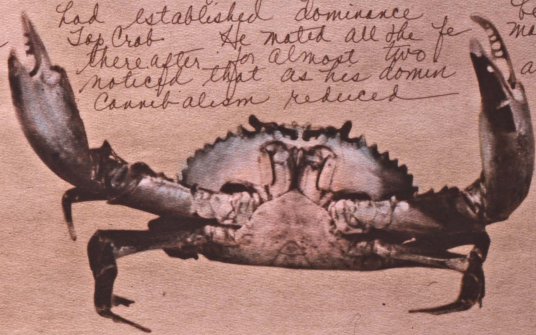 had established dominance
Top Crab. He mated all the fe
thereafter for almost two
noticed that as his domin
Cannibalism reduced
be
ma
a